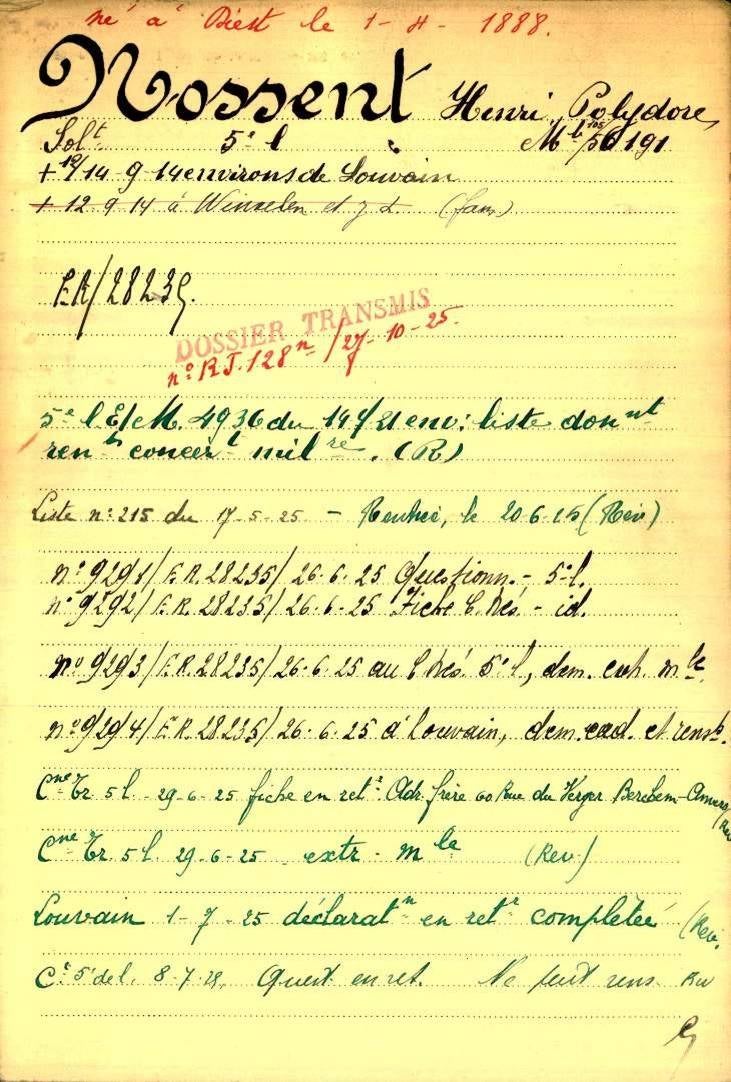 né à Diest le 1-4-1888.
Nossent Henri Polydore
Solt 5e l Mle 105/56191
+ 12/14-9-14 environs de Louvain
+ 12.9.14 à Winxelen et
E.R/28235.
DOSSIER TRANSMIS
n° R.J. 128n /27-10-25.
5e l E/M. 4936 du 19/ 21 env: liste dont
rents concert milre. (R)
Liste n° 215 du 17-5-25 - Rentrée, le 20.6.25 (Rev)
n° 9291/E.R. 28235/26-6-25 Questionn. - 5e l.
n° 9292/E.R. 28235/26-6-25 Fiche C. Trés. - id.
n° 9293/E.R. 28235/26-6-25 au C Trés. 5e l, dem. ext. mle.
n° 9294/E.R. 28235/26-6-25 à Louvain, dem. cad. et renst.
Cne Tr. 5 l. 29-6-25 fiche en retr Adr. frère 60 Rue du Verger Berchem-Anvers (Rev
Cne Tr. 5 l. 29-6-25 extr. mle (Rev)
Louvain 1-7-25 déclaratn en retr complétée (Rev.
Ct 5e de l. 8-7-25. Quest en ret. Ne peut rens. Rev